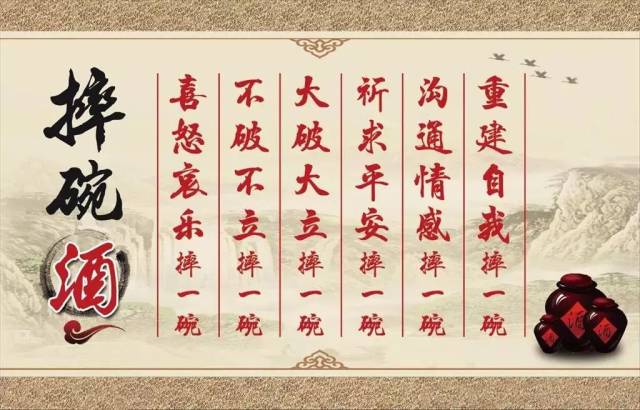 摔碗酒
喜怒哀乐摔一碗
不破不立摔一碗
大破大立摔一碗
祈求平安摔一碗
沟通情感摔一碗
重建自我摔一碗
酒
酒